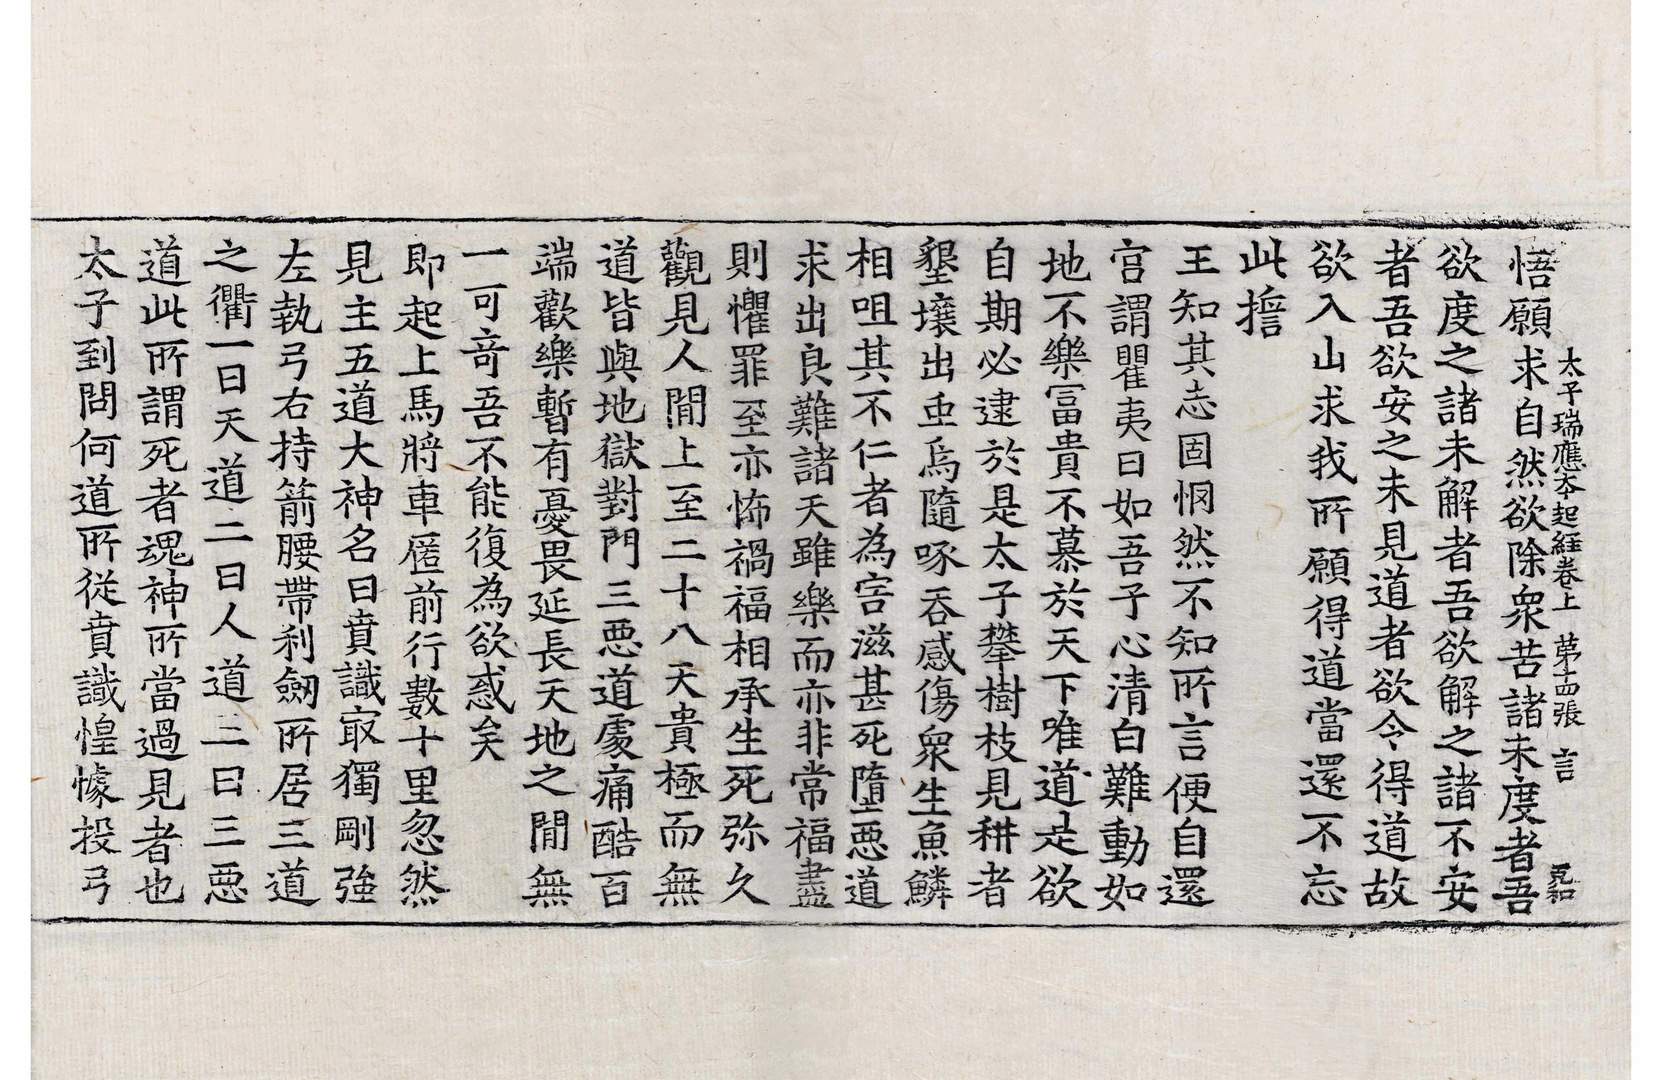 太子瑞應本起経卷上 第十四張 言 克和
悟願求自然欲除衆苦諸未度者吾
欲度之諸未解者吾欲解之諸不安
者吾欲安之未見道者欲令得道故
欲入山求我所願得道當還不忘
此擔
王知其志固惘然不知所言便自還
宫謂瞿夷曰如吾子心清白難動如
地不樂冨貴不慕於天下唯道是欲
自期必逮於是太子攀樹枝見耕者
墾壤出虫烏隨啄吞感傷衆生魚鱗
相咀其不仁者為害滋甚死墮惡道
求出良難諸天雖樂而亦非常福盡
則懼罪至亦怖禍福相承生死弥久
觀見人間上至二十八天貴極而無
道皆與地獄對門三惡道處痛酷百
端歡樂暫有憂畏延長天地之間無
一可竒吾不能復為欲惑矣
即起上馬將車匿前行數十里忽然
見主五道大神名曰賁識㝡獨剛強
左執弓右持箭腰帶利劒所居三道
之衢一曰天道二曰人道三曰三惡
道此所謂死者魂神所當過見者也
太子到問何道所從賁識惶懅投弓